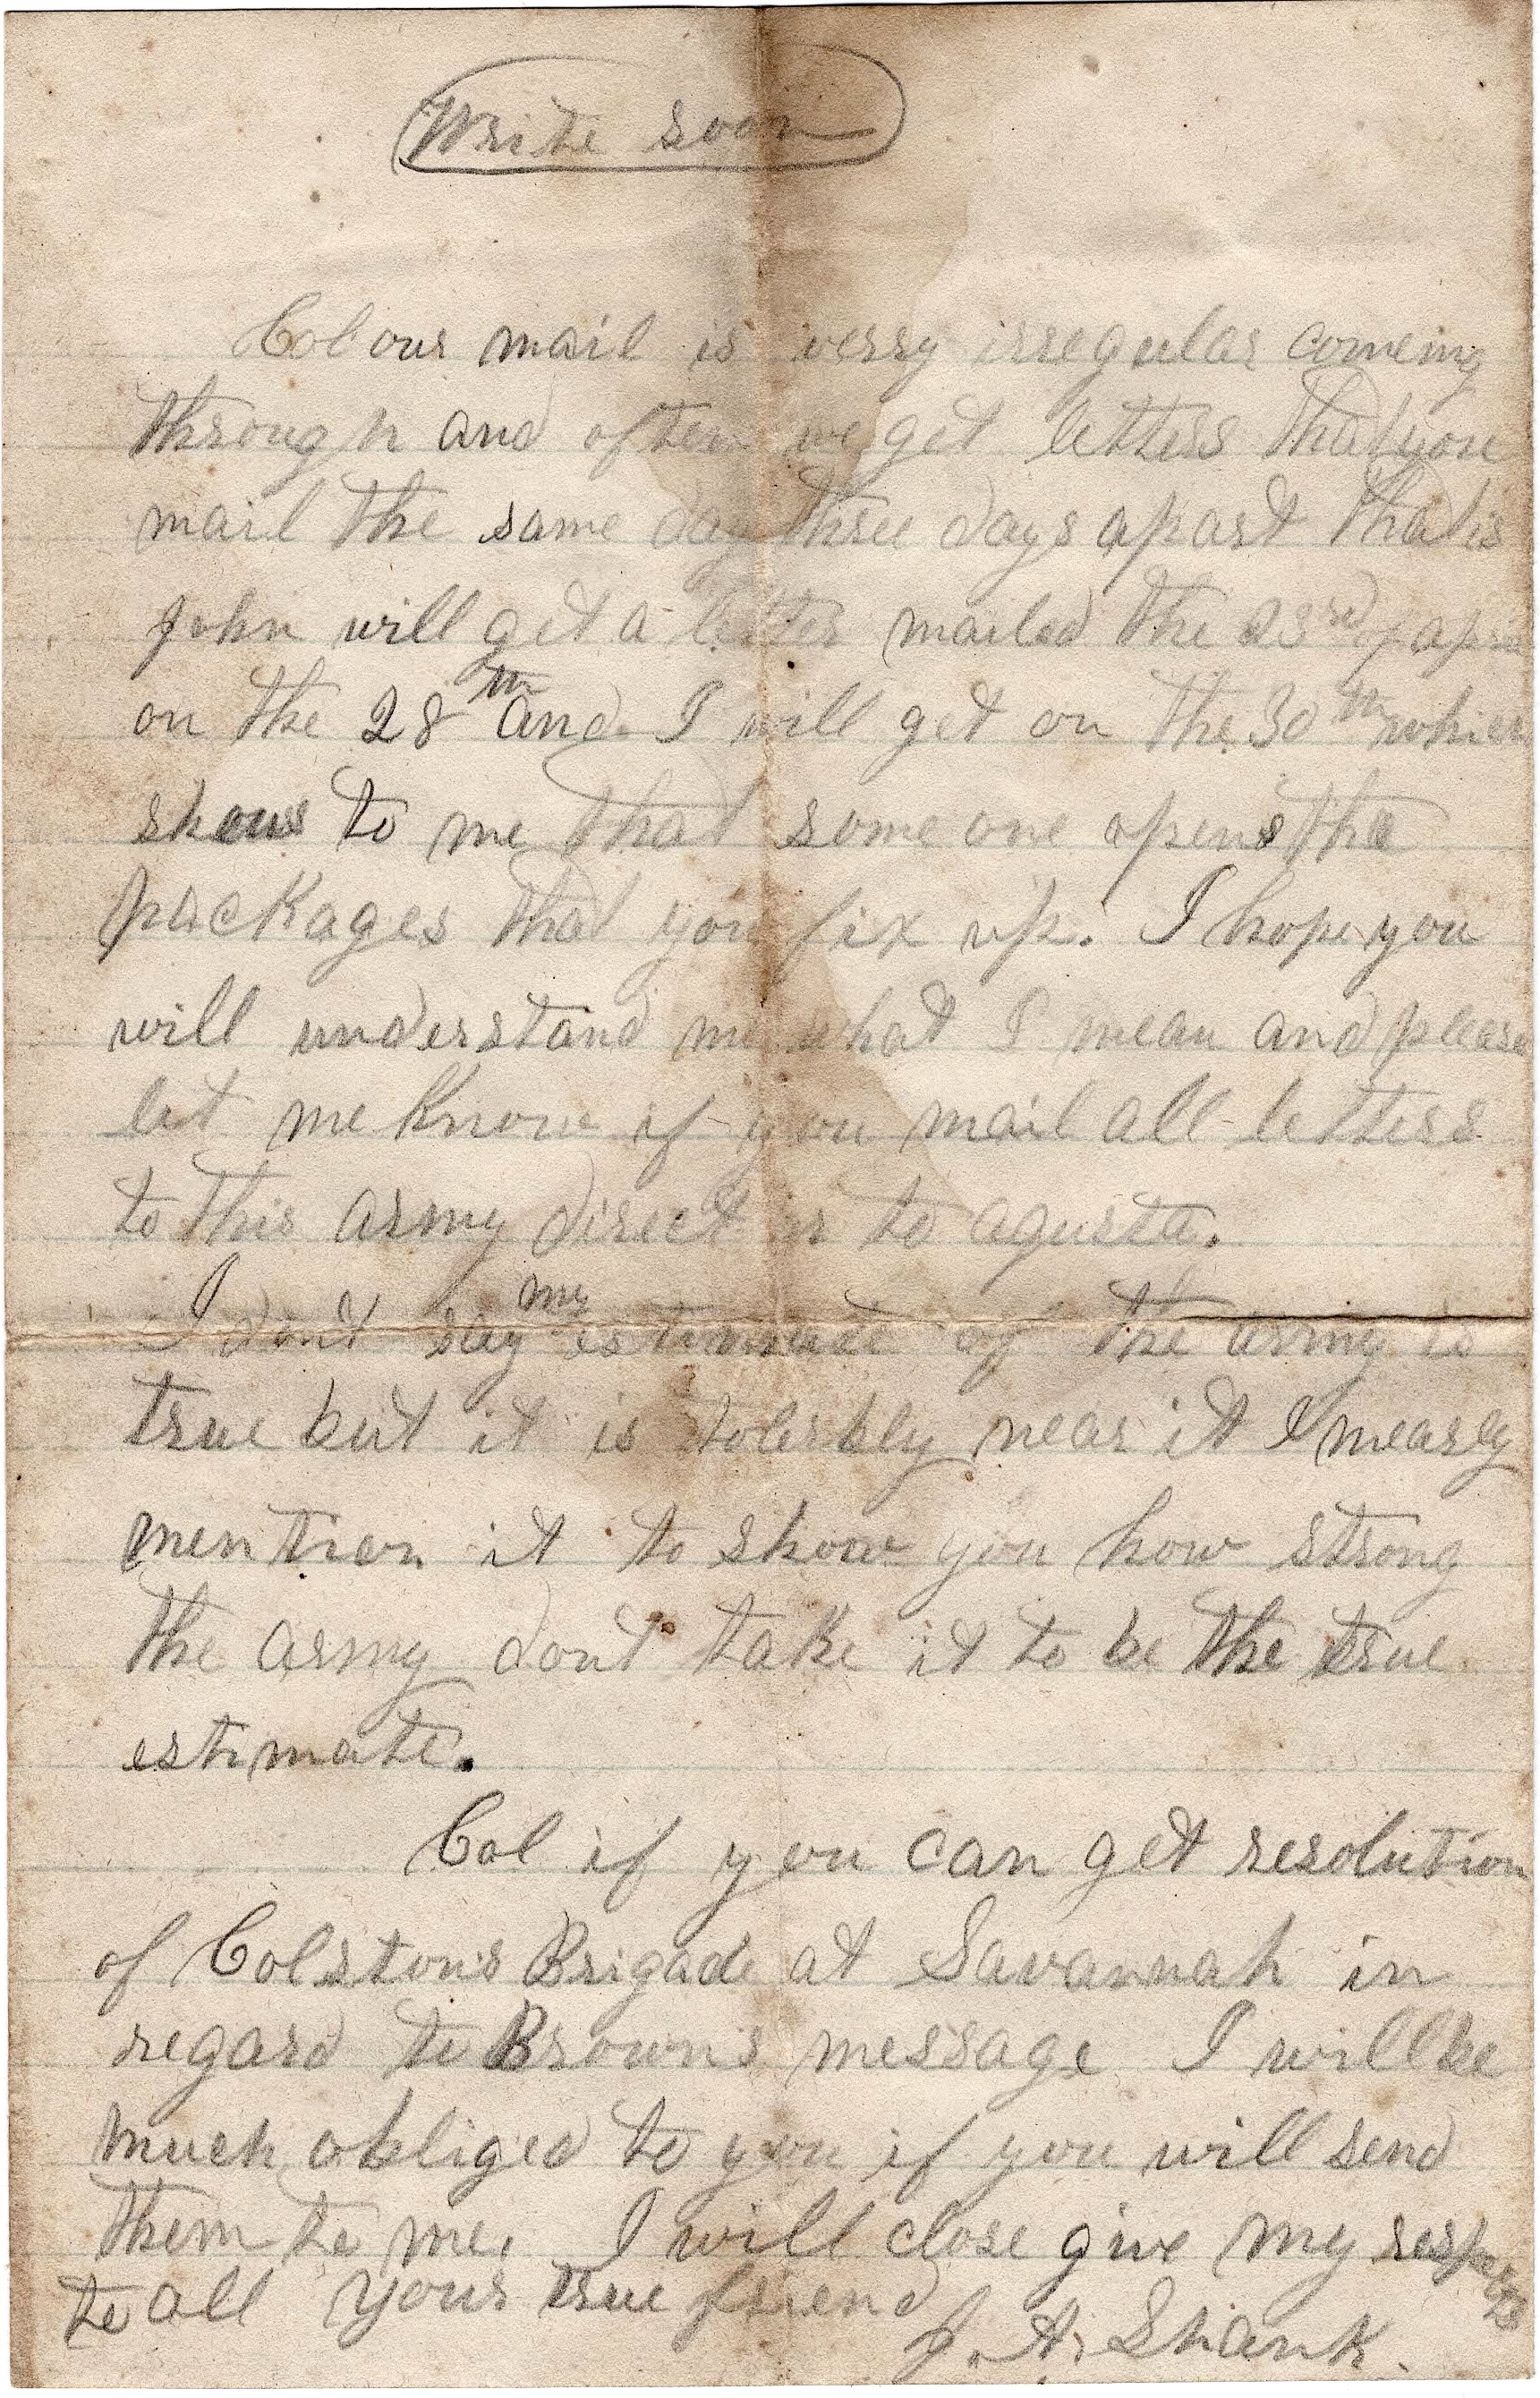 Write soon
Col our mail is verry irregular comeing
through and often we get letters that you
mail the same day three days apart that is
John will get a letter mailed the 23rd
on the 28th and I will get on the 30th which
shows to me that some one opens the
packages that you fix up. I hope you
will understand me what I mean and please
let me know if you mail all letters
to this army direct or to agusta.
I dont say my estimate of the army is
true but it is tolerbly near it I mearly
mention it to show you how strong
the army dont take it to be the true
estimate.
Col if you can get resolution
of Colston's Brigade at Savannah in
regard to Brown's message I will be
much obliged to you if you will send
them to me. I will close give my respects
to all your true friend
J. A. Shank.